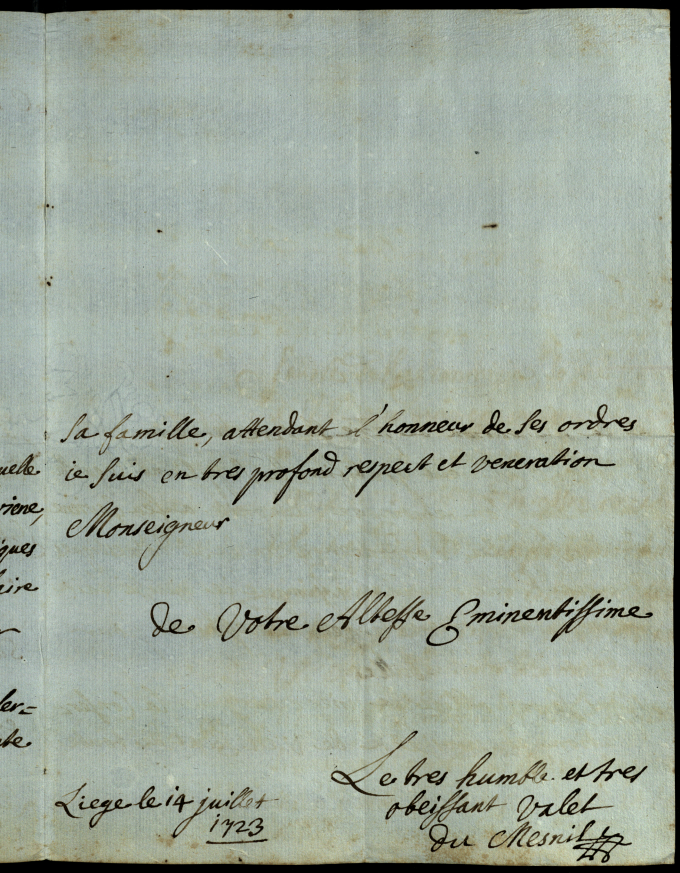 sa famille, attendant l'honneur de ses ordres
ie suis en tres profond respect et veneration
Monseigneur
de Votre Altesse Eminentissime
Le tres humble et tres
obeissant valet
du Mesnil
Liege le 14 juillet
1723
uelle
viene,
iques
aire
ser=